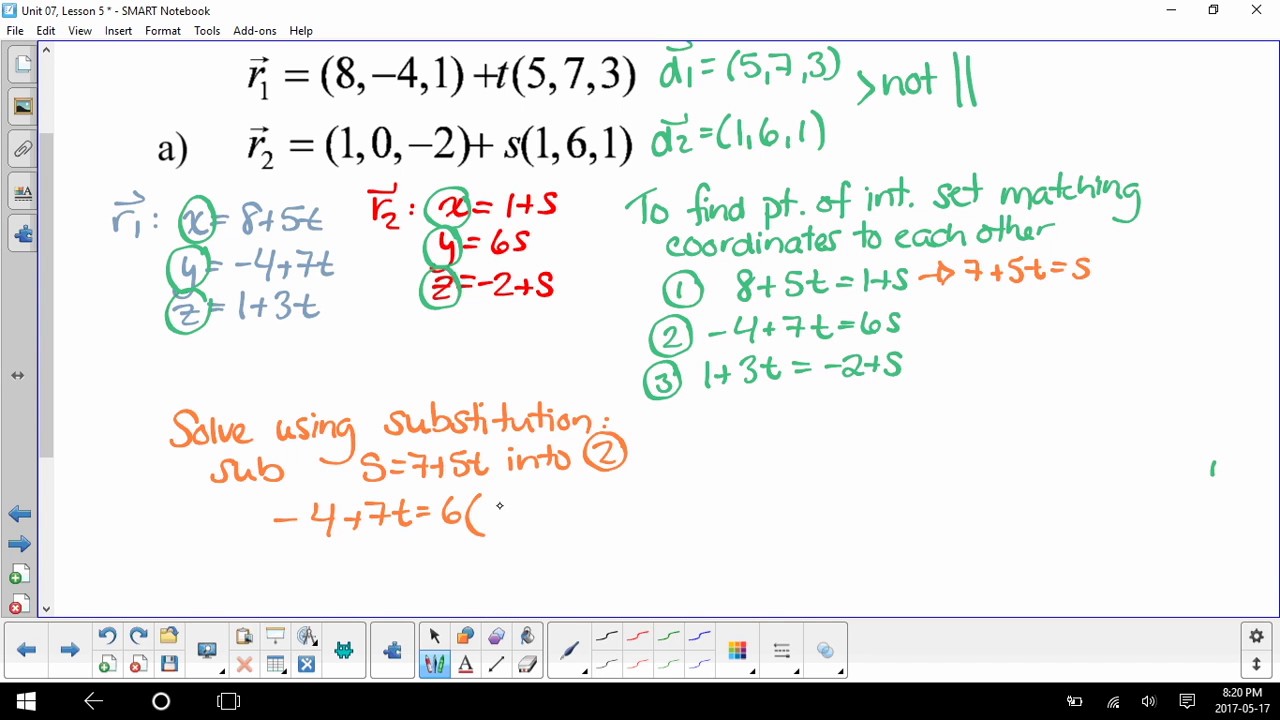 Unit 07, Lesson 5 * - SMART Notebook
File Edit View Insert Format Tools Add-ons Help
r⃗₁ = (8,−4,1) + t(5,7,3) d⃗₁ = (5,7,3)
> not ||
a) r⃗₂ = (1,0,−2) + s(1,6,1) d⃗₂ = (1,6,1)
r⃗₁: x = 8+5t
y = -4+7t
z = 1+3t
r⃗₂: x = 1+s
y = 6s
z = -2+s
To find pt. of int. set matching
coordinates to each other
① 8+5t = 1+s → 7+5t = s
② -4+7t = 6s
③ 1+3t = -2+s
Solve using substitution:
sub s=7+5t into ②
-4+7t = 6(
8:20 PM
2017-05-17